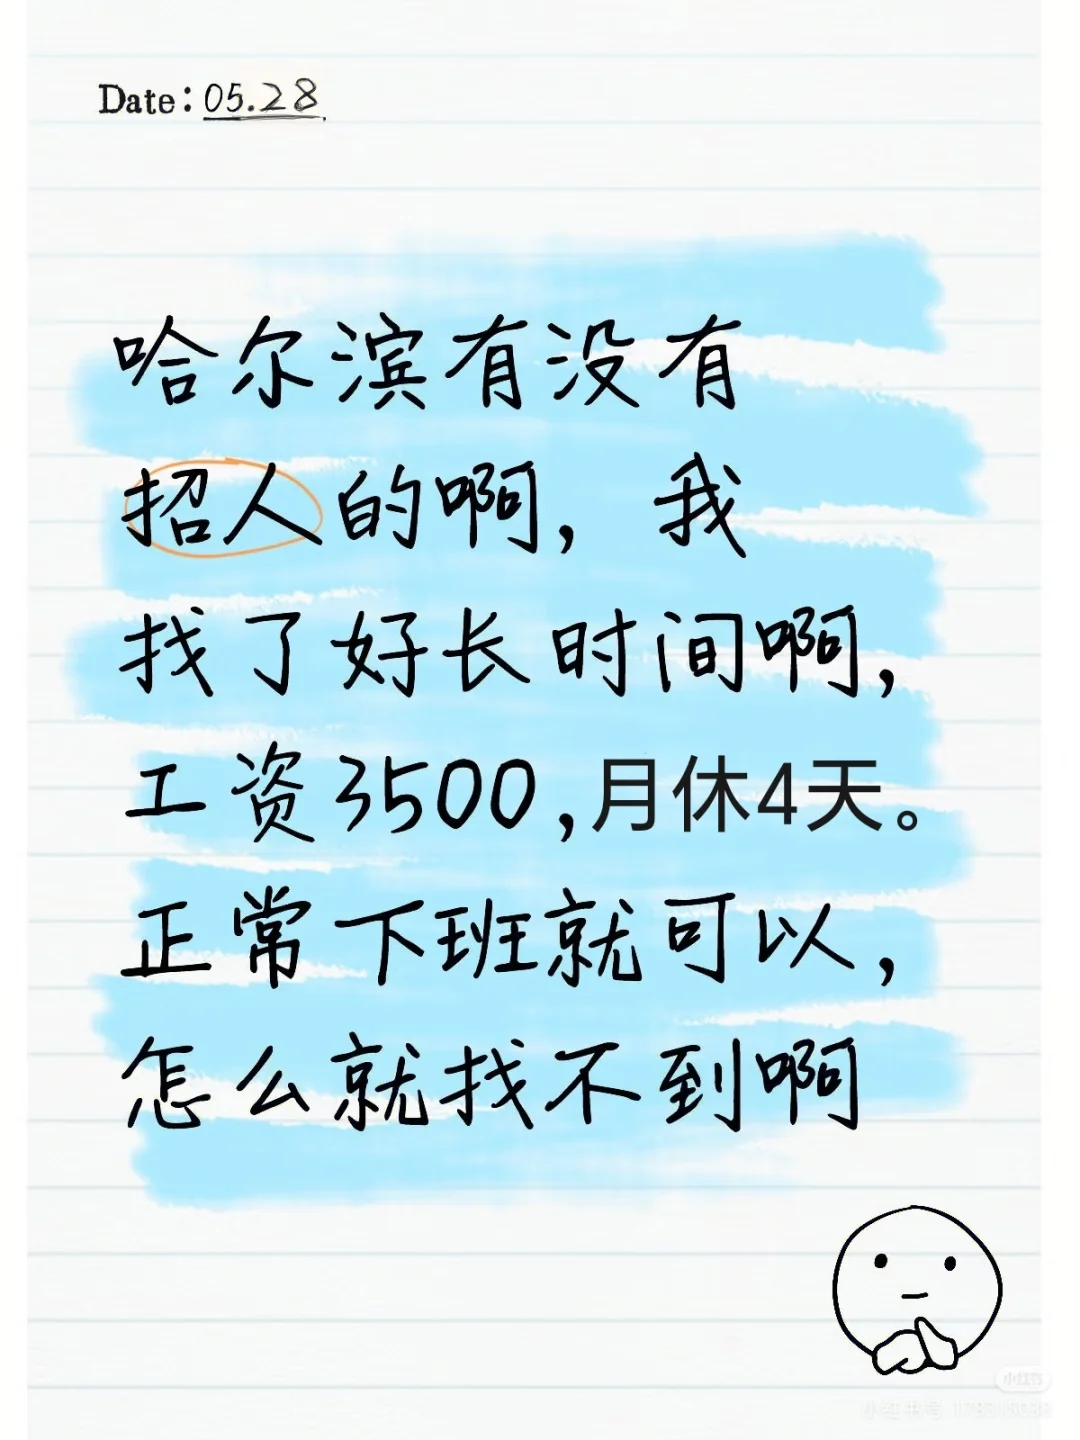 Date: 05.28
哈尔滨有没有
招人的啊，我
找了好长时间啊，
工资3500，月休4天。
正常下班就可以，
怎么就找不到啊
小红书